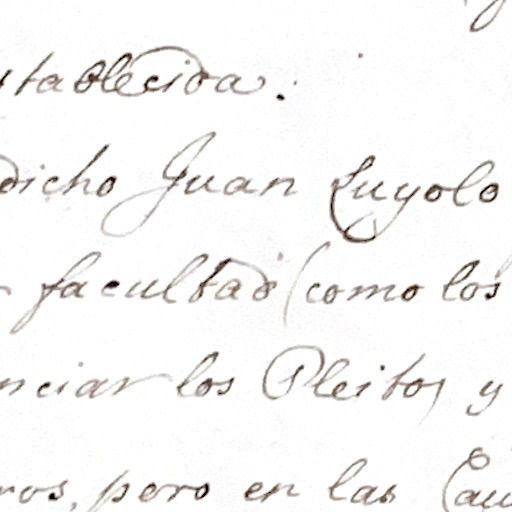 stablecida.
dicho Juan Luyolo
facultad (como los
nciar los Pleitos y
ros, pero en las Cau